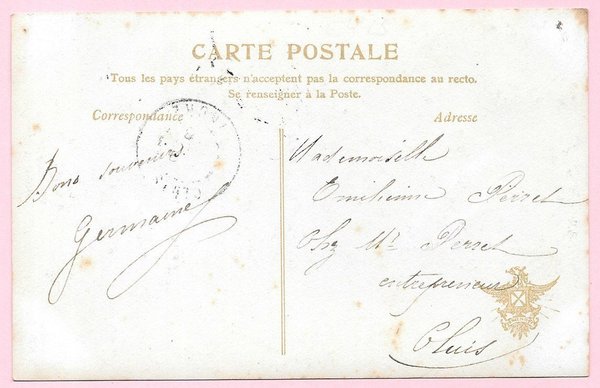 CARTE POSTALE
Tous les pays étrangers n'acceptent pas la correspondance au recto.
Se renseigner à la Poste.
Correspondance
Bons souvenirs
Germaine
Adresse
Mademoiselle
Emilienne Perret
Chz Mr Perret
entrepreneur
Cluis